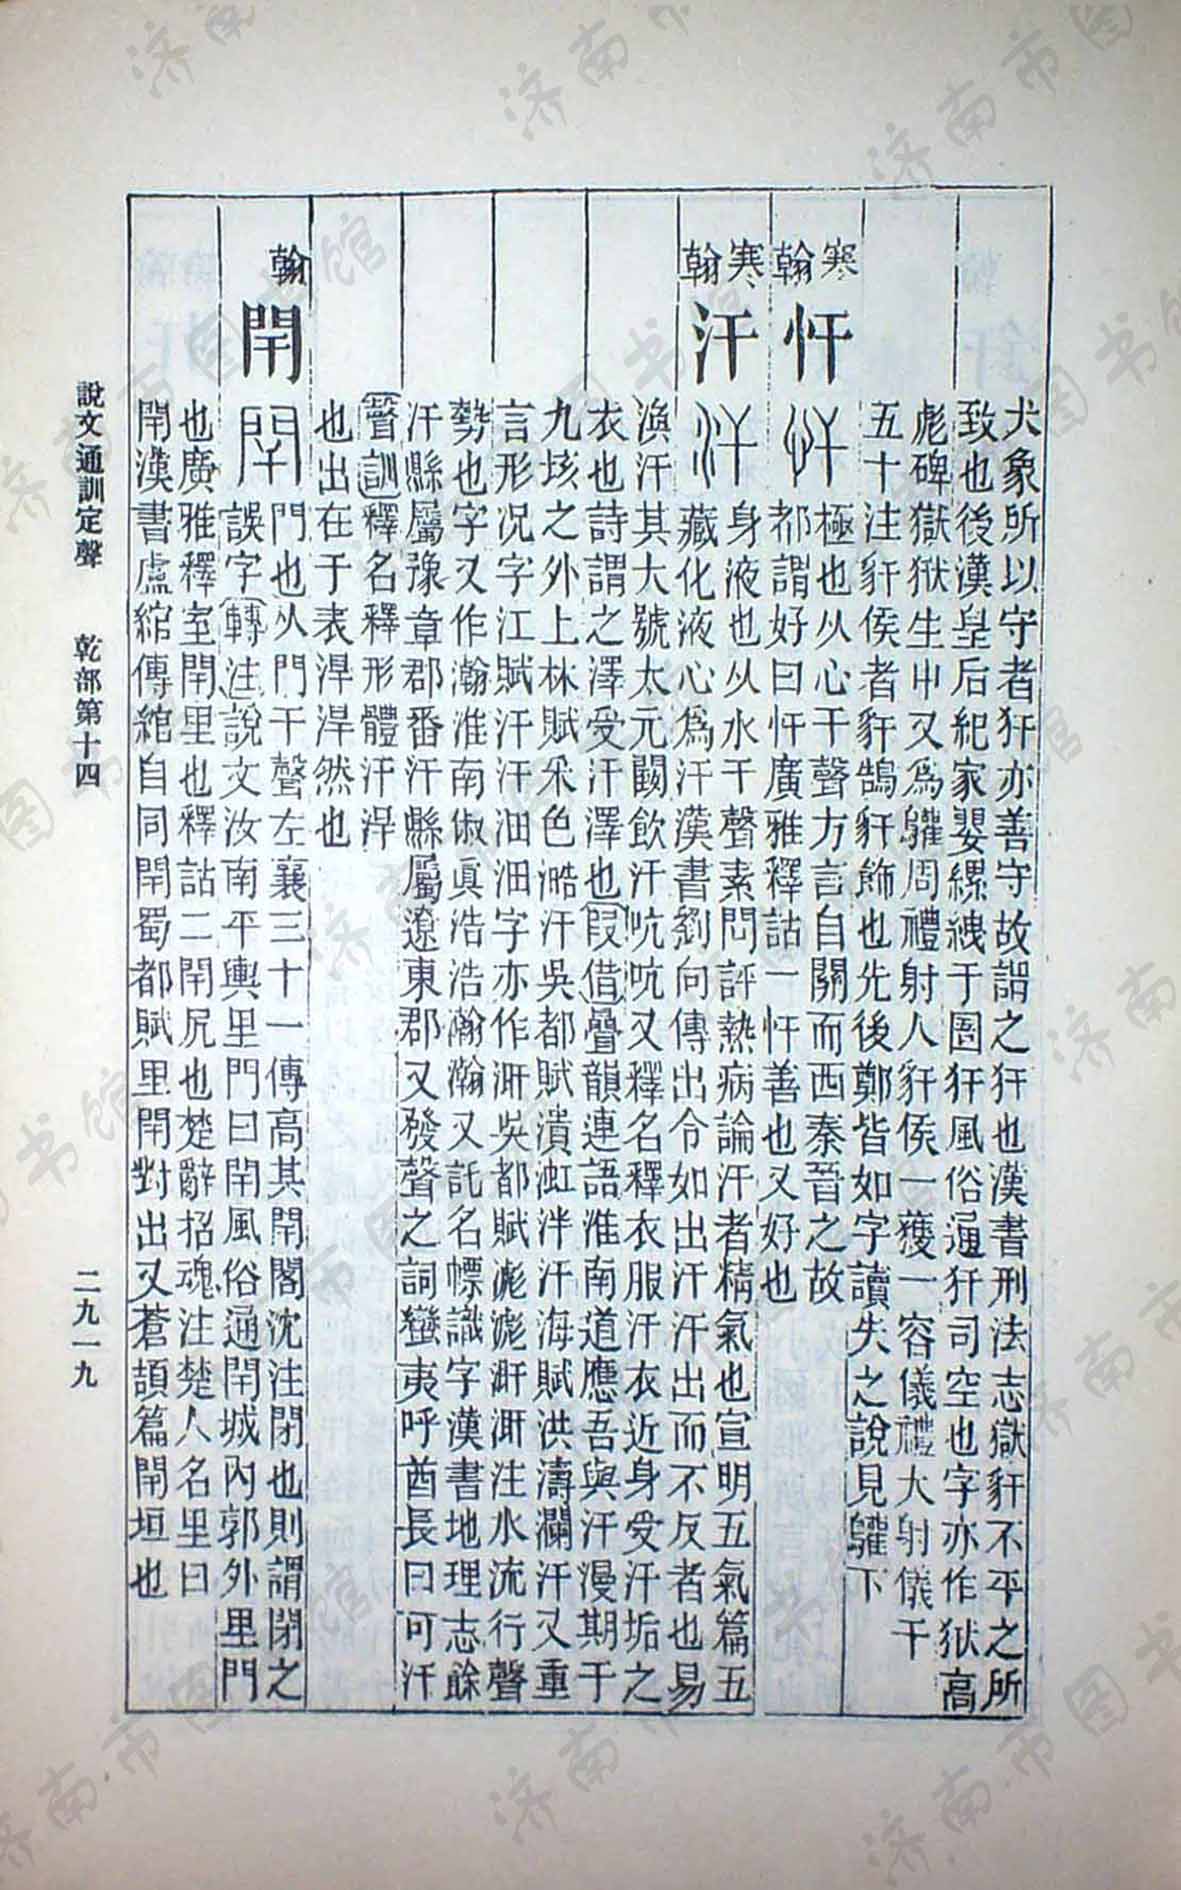 犬象所以守者犴亦善守故謂之犴也漢書刑法志獄豻不平之所
致也後漢皇后紀家嬰縲絏于圄犴風俗通犴司空也字亦作㹜高
彪碑獄㹜生屮又爲貛周禮射人豻侯一獲一容儀禮大射儀干
五十注豻侯者豻鵠豻飾也先後鄭皆如字讀失之說見貛下
寒
翰
忓
極也从心干聲方言自關而西秦晉之故
都謂好曰忓廣雅釋詁一忓善也又好也
寒
翰
汗
身液也从水干聲素問評熱病論汗者精氣也宣明五氣篇五
藏化液心爲汗漢書劉向傳出令如出汗汗出而不反者也易
渙汗其大號太元闞飲汗吭吭又釋名釋衣服汗衣近身受汗垢之
衣也詩謂之澤受汗澤也叚借疊韻連語淮南道應吾與汗漫期于
九垓之外上林賦采色澔汗吳都賦潰渱泮汗海賦洪濤瀾汗又重
言形況字江賦汗汗沺沺字亦作㵎吳都賦滮滮㵎㵎注水流行聲
勢也字又作瀚淮南俶眞浩浩瀚瀚又託名幖識字漢書地理志餘
汗縣屬豫章郡番汗縣屬遼東郡又發聲之詞蠻夷呼酋長曰可汗
聲訓釋名釋形體汗涆
也出在于表涆涆然也
翰
閈
門也从門干聲左襄三十一傳高其閈閎沈注閉也則謂閉之
誤字轉注說文汝南平輿里門曰閈風俗通閈城內郭外里門
也廣雅釋室閈里也釋詁二閈凥也楚辭招魂注楚人名里曰
閈漢書盧綰傳綰自同閈蜀都賦里閈對出又蒼頡篇閈垣也
說文通訓定聲 乾部第十四 二九一九
济南市图书馆